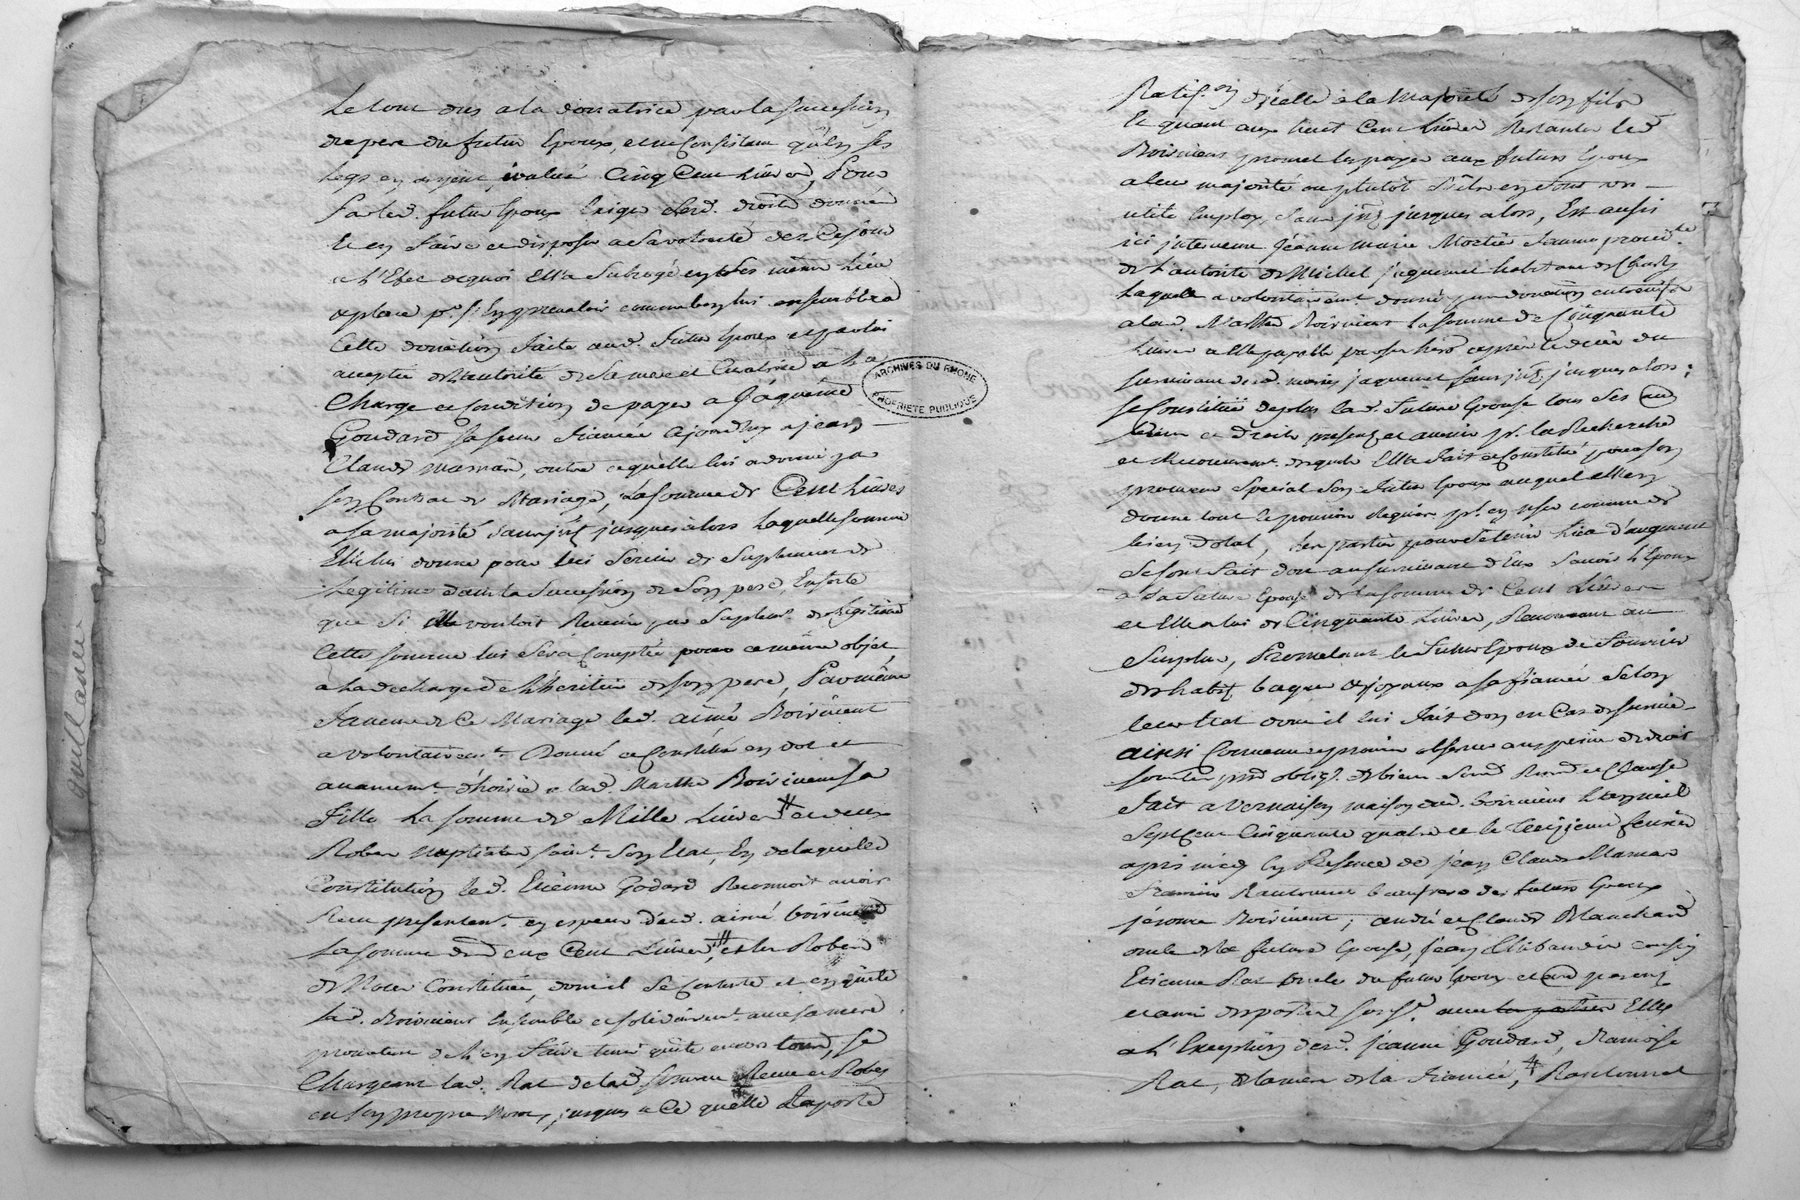 Le tout dus a la donatrice par la succession
du pere du futur Epoux, et ne Consistant qu'en ses
legs en argent evalué Cinq Cent Livres, Pour
par led. futur Epoux Exiger lesd. droits donnés
Et en faire et disposer a sa volonté des Ce jour
a L'Efet de quoi Ella Subrogé en ses meme Lieu
et place pr. s'en prevaloir comme bon lui semblera
Cette donation faite aud. futur Epoux et par lui
acceptée de l'autorité de sa mere et Curatrice a la
Charge et Condition de payer a Jaqueme
Goudard sa soeur fiancée Ajourdhuy a jean
Claude mamar, outre ce qu'elle lui a donné pa
son Contrac de Mariage, La somme de Cent Livres
a sa majorité sans jnt. jusques alors Laquelle somme
Elle lui donne pour lui Servir de Suplement de
Legitime dans la Succession de Son pere, Ensorte
que Si Elle vouloit Revenir par Suplemt. de legitime
Cette somme lui Sera Comptée pour ce meme objet
a la decharge de l'heritier de son pere, Par même
faveur de Ce Mariage led. aimé Boirivent
a volontairemt. Donné et Constitué en dot et
avancemt. d'hoirie a lad. Marthe Boirivent sa
Fille La somme de Mille Livres # et deux
Robes nuptiales suivt. Son Etat, En de laquelle
Constitution led. Etienne Godard Reconnoit avoir
Receu presentemt. en especes dud. aimé boirivent
La somme de deux Cent Livres, # et les Robes
de Noces Constituées, dont il Se Contente et en quitte
led. Boirivent Ensemble et solidairemt. avec sa mere
promettent de l'en faire tenir quitte envers tous, se
Chargeant lad. Rat de lad. somme Receue et Robes
en son propre Nom, jusques a Ce quelle Raporte
Ratifon. d'icelle a la Majorité de son fils
Et quant aux huit Cent Livres Restantes led.
Boirivent promet les payer aux futurs Epoux
a leur majorité ou plutôt s'ils en font un
utile Employ, sans jnt. jusques alors, Est aussi
ici intervenue Jeanne marie Mortier femme procédte.
de L'autorité de Michel jaquemet habitant de Charly
Laquelle a volontairemt. donné par donation entrevifs
a lad. Marthe Boirivent La somme de Cinquante
Livres a Elle payable par ses hers. apres le deces du
survivant desd. maries jaquemet sans jnt. jusques alors;
se Constitue de plus lad. future Epouse tous Ses
biens et droits presents et avenir pr. la Recherche
et Recouvremt. desquels Elle fait et Constitue pour son
procureur Special Son futur Epoux auquel elle en
donne tout le pouvoir Requis pr. en user comme de
bien dotal, les parties pour Se tenir Lieu d'augment
Se font fait don au survivant d'Eux Savoir L'Epoux
a sa future Epouse de la somme de Cent Livres
et Elle a lui de Cinquante Livres, Revenant au
Surplus, Promettant le futur Epoux de Fournir
des habits bagues et joyaux a sa fiancée Selon
leur Etat dont il lui fait don en Cas de survie
ainsi Convenu et promis observer aux peines de droit
sous les prod. obligt. de biens Soumd. Renond. et Clauses
fait a Vernaison maison dud. boirivent L'an mil
Sept Cent Cinquante quatre et le Treizieme fevrier
apres midy En Presence de jean Claude Mamar
francois Ranvionnet beaufrere des futurs Epoux
jerome Boirivent; andré et Claude Blanchard
oncle de la future Epouse, jean Thibaudier cousin
Etienne Rat oncle du futur Epoux et aud parens
et amis des parties soussés. avec les parties Elles
a L'Exception desd. jeanne Goudard, Ramoise
Rat, et la mere de la fiancée, # Ranvionnet
ARCHIVES DU RHONE
PROPRIÉTÉ PUBLIQUE